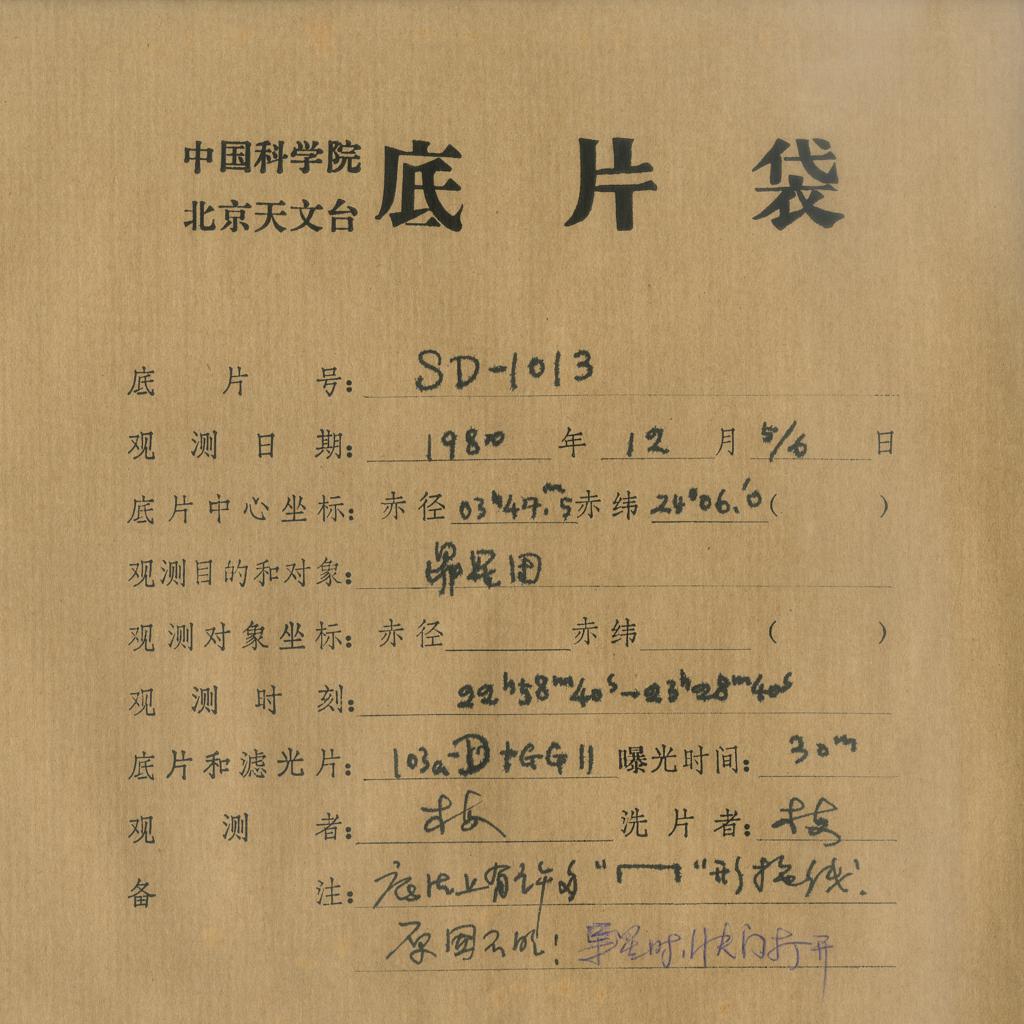 中国科学院
北京天文台
底片袋
底片号: SD-1013
观测日期: 1980 年 12 月 5/6 日
底片中心坐标: 赤径 03ʰ47.ᵐ5 赤纬 24°06.'0 ( )
观测目的和对象: 昴星团
观测对象坐标: 赤径 赤纬 ( )
观测时刻: 22ʰ58ᵐ40ˢ-23ʰ28ᵐ40ˢ
底片和滤光片: 103a-D+GG11 曝光时间: 30ᵐ
观测者: 洗片者:
备注: 底片上有许多"┌─┐"形拖线!
原因不明! 导星时,快门打开